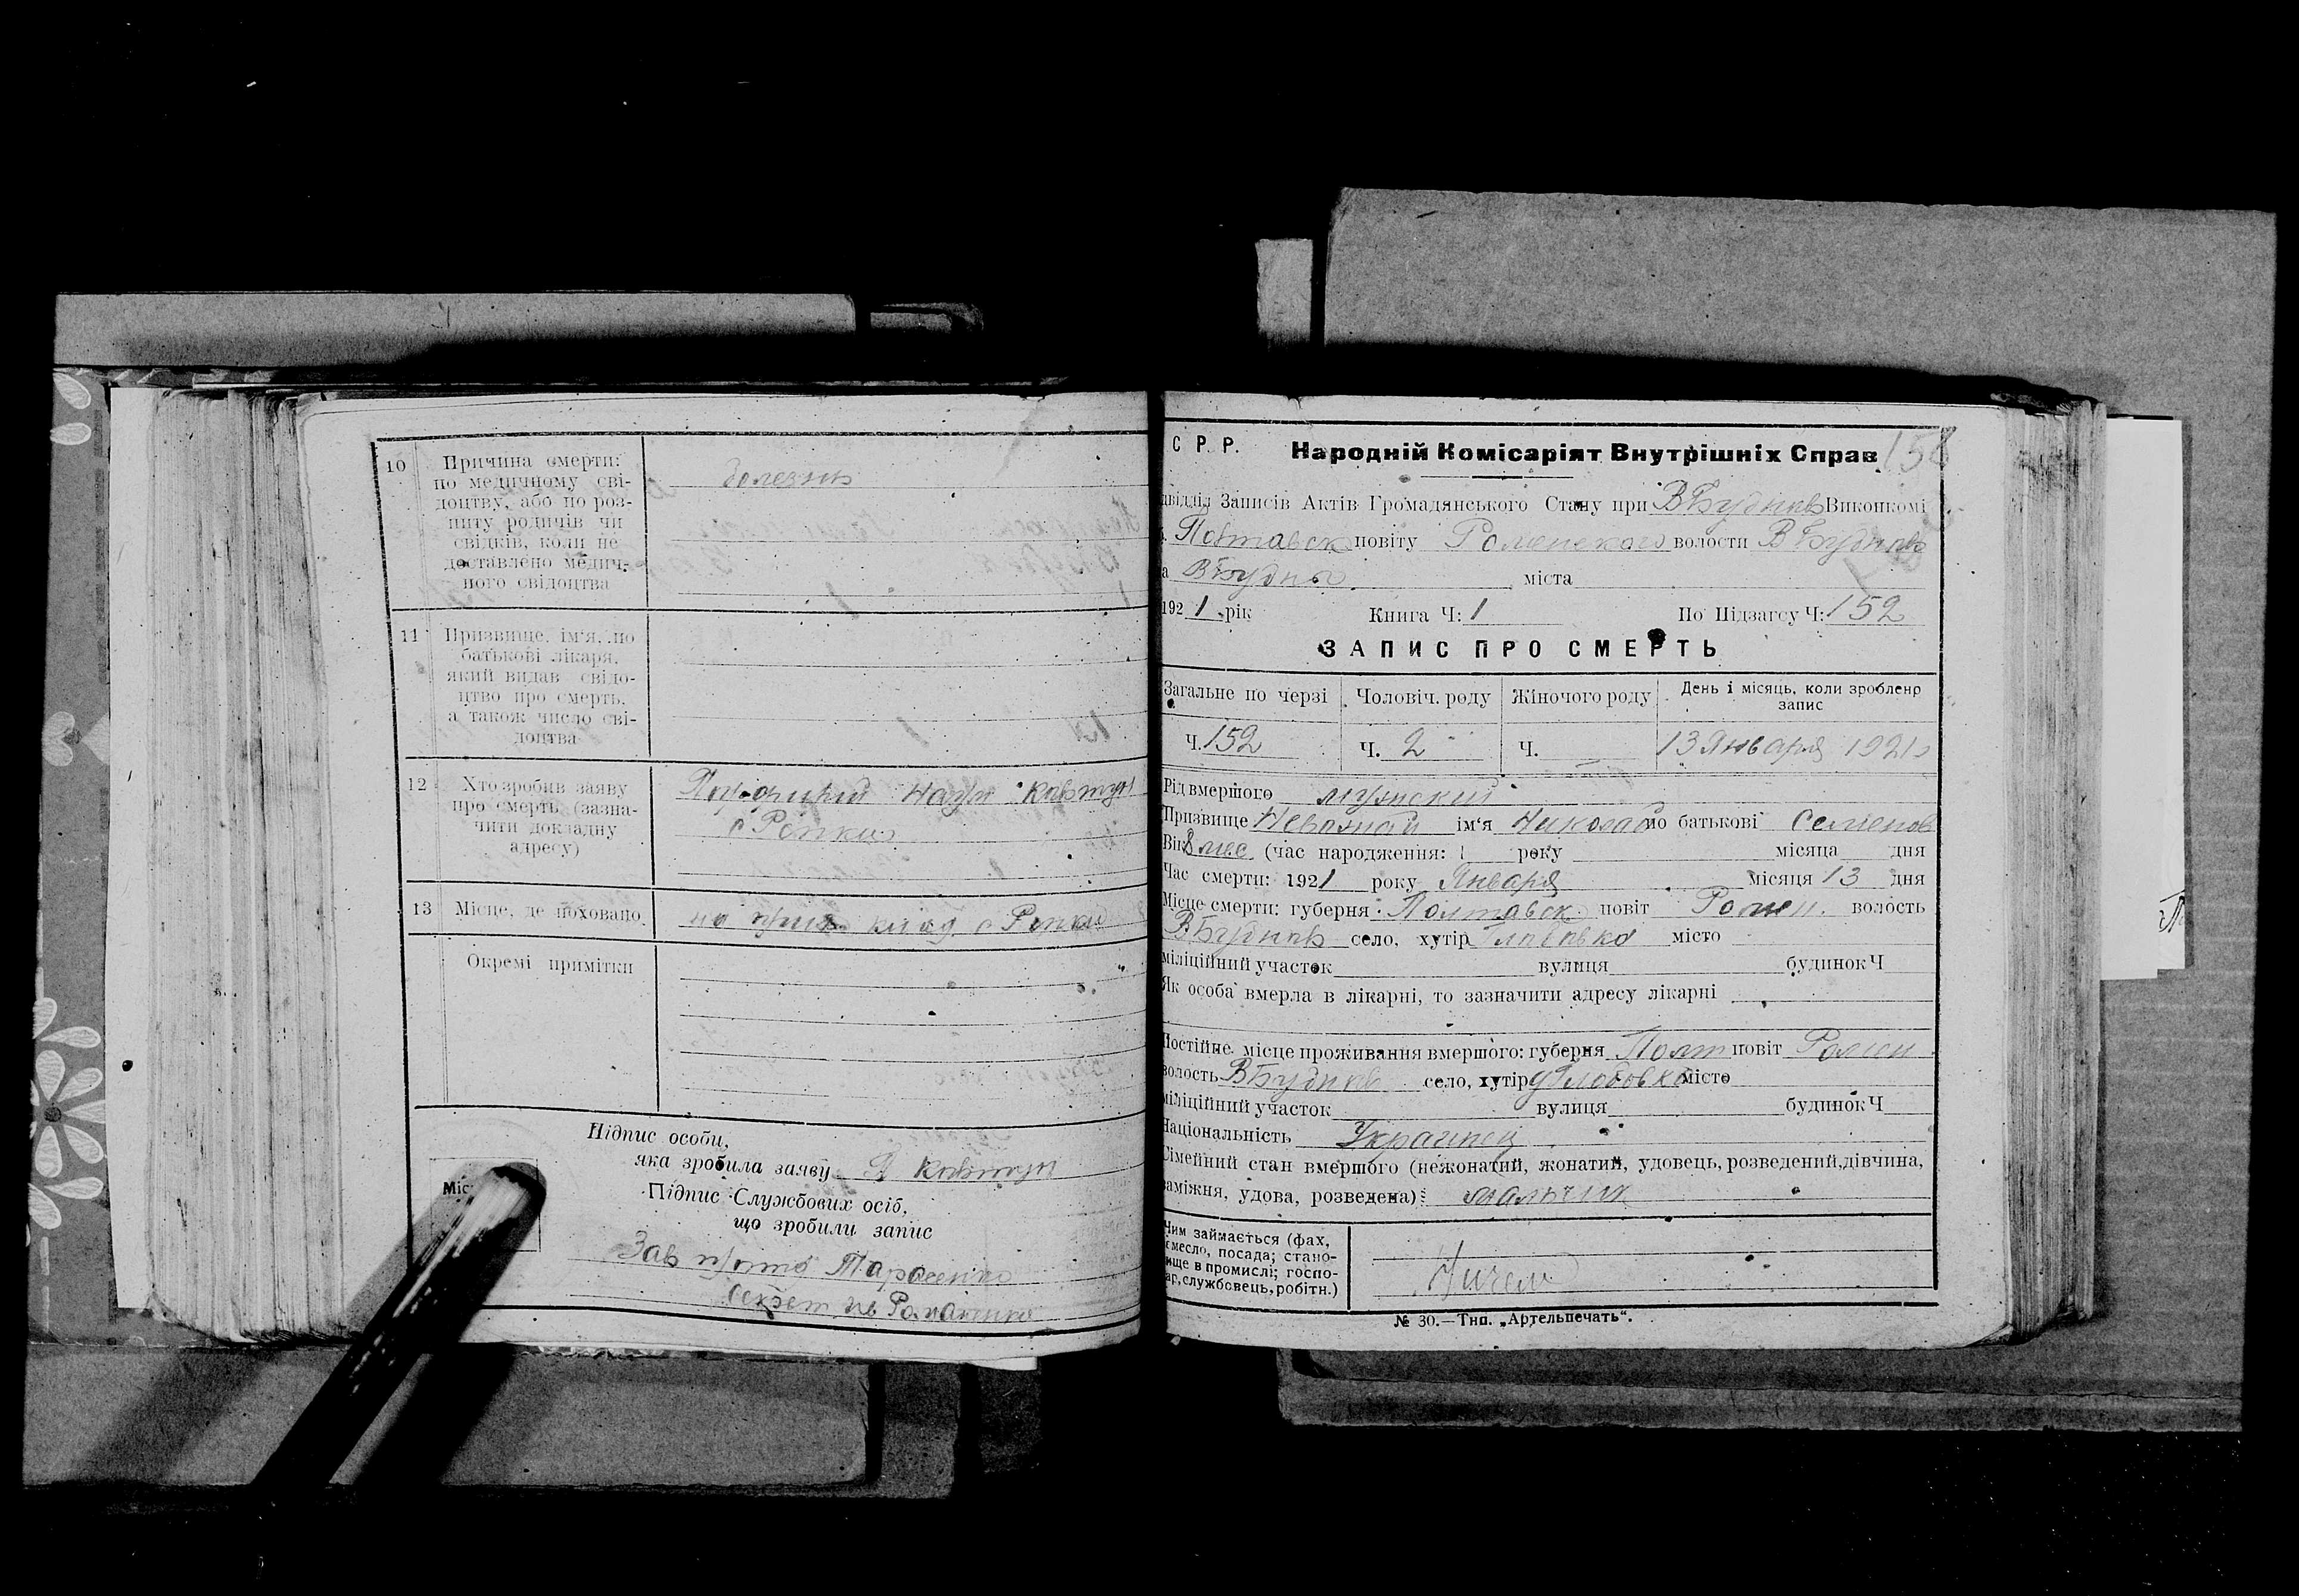 10
Причина смерти:
по медичному сві-
доцтву, або по роз-
питу родичів чи
свідків, коли не
доставлено медич-
ного свідоцтва
болезнь
11
Призвище, ім'я, по
батькові лікаря,
який видав свідо-
цтво про смерть,
а також число сві-
доцтва
12
Хто зробив заяву
про смерть (зазна-
чити докладну
адресу)
Ковтун
с Ропки
13
Місце, де поховано
на клад с Ропки
Окремі примітки
Підпис особи,
яка зробила заяву Ковтун
Підпис Службових осіб,
що зробили запис
Міс
Зав Тарасенко
Секрет Романенко
158
С Р. Р. Народній Комісаріят Внутрішніх Справ
двідділ Записів Актів Громадянського Стану при ВБудков Виконкомі
Повтавск повіту Роменского волости ВБудков
а ВБудки міста
1921 рік Книга Ч: 1 По Підзагсу Ч: 152
ЗАПИС ПРО СМЕРТЬ
Загальне по черзі Чоловіч. роду Жіночого роду День і місяць, коли зроблено
запис
Ч. 152 Ч. 2 Ч. 13 Января 1921
Рід вмершого мужский
Призвище ім'я Николай по батькові Семенов
Вік 8 мес (час народження: 1 року місяца дня
Час смерти: 1921 року Января місяця 13 дня
Місце смерти: губерня Полтавск повіт Ромен. волость
ВБудков село, хутір місто
міліційний участок вулиця будинок Ч
Як особа вмерла в лікарні, то зазначити адресу лікарні
Постійне місце проживання вмершого: губерня Полт повіт Ромен
волость ВБудков село, хутір місто
міліційний участок вулиця будинок Ч
Національність Украинец
Сімейний стан вмершого (нежонатий, жонатий, удовець, розведений, дівчина,
заміжня, удова, розведена): мальчик
Чим займається (фах,
емесло, посада; стано-
ище в промислі; госпо-
ар, службовець, робітн.)
Ничем
№ 30.—Тип. „Артельпечать“.